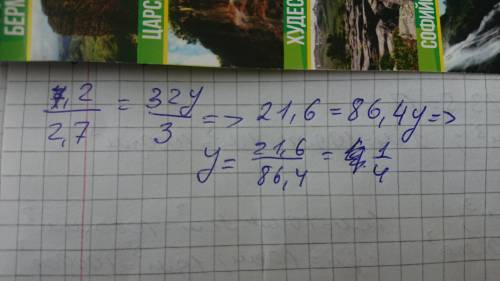 БЕРМ
ЦАРС
ХУДЕС
СОФИЙ
7,2/2,7 = 32y/3 => 21,6 = 86,4y =>
y = 21,6/86,4 = 1/4